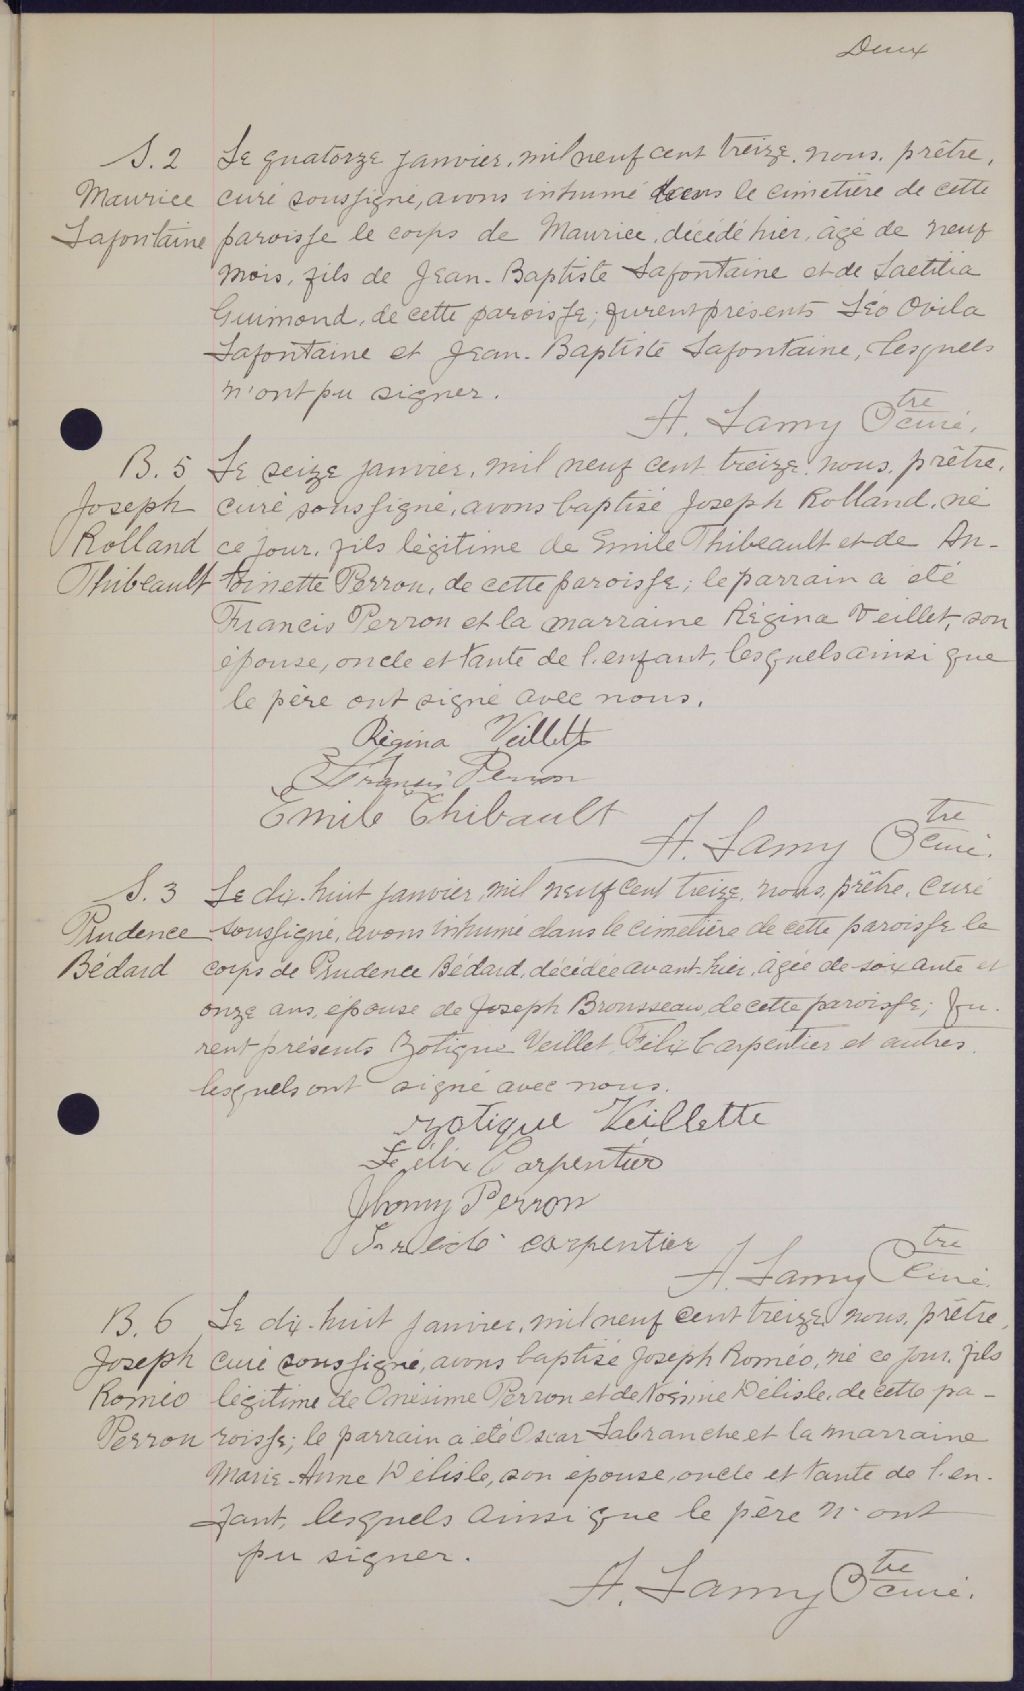 Deux
S. 2
Maurice
Lafontaine
Le quatorze janvier, mil neuf cent treize, nous, prêtre,
curé soussigné, avons inhumé dans le cimetière de cette
paroisse le corps de Maurice, décédé hier, âgé de neuf
mois, fils de Jean-Baptiste Lafontaine et de Laetitia
Guimond, de cette paroisse; furent présents Léo Ovila
Lafontaine et Jean-Baptiste Lafontaine, lesquels
n'ont pu signer.
A. Lamy Ptre curé.
B. 5
Joseph
Rolland
Thibeault
Le seize janvier, mil neuf cent treize, nous, prêtre,
curé soussigné, avons baptisé Joseph Rolland, né
ce jour, fils légitime de Emile Thibeault et de An-
toinette Perron, de cette paroisse; le parrain a été
Francis Perron et la marraine Régina Veillet, son
épouse, oncle et tante de l'enfant, lesquels ainsi que
le père ont signé avec nous.
Régina Veillette
Francis Perron
Emile Thibault
A. Lamy Ptre curé.
S. 3
Prudence
Bédard
Le dix-huit janvier, mil neuf cent treize, nous, prêtre, curé
soussigné, avons inhumé dans le cimetière de cette paroisse le
corps de Prudence Bédard, décédée avant-hier, âgée de soixante et
onze ans, épouse de Joseph Brousseau, de cette paroisse; fu-
rent présents Zotique Veillet, Félix Carpentier et autres
lesquels ont signé avec nous.
Zotique Veillette
Félix Carpentier
Jhonny Perron
carpentier
A. Lamy Ptre curé.
B. 6
Joseph
Roméo
Perron
Le dix-huit janvier, mil neuf cent treize, nous, prêtre,
curé soussigné, avons baptisé Joseph Roméo, né ce jour, fils
légitime de Onésime Perron et de Noémie Délisle, de cette pa-
roisse; le parrain a été Oscar Labranche et la marraine
Marie-Anne Délisle, son épouse, oncle et tante de l'en-
fant, lesquels ainsi que le père n'ont
pu signer.
A. Lamy Ptre curé.